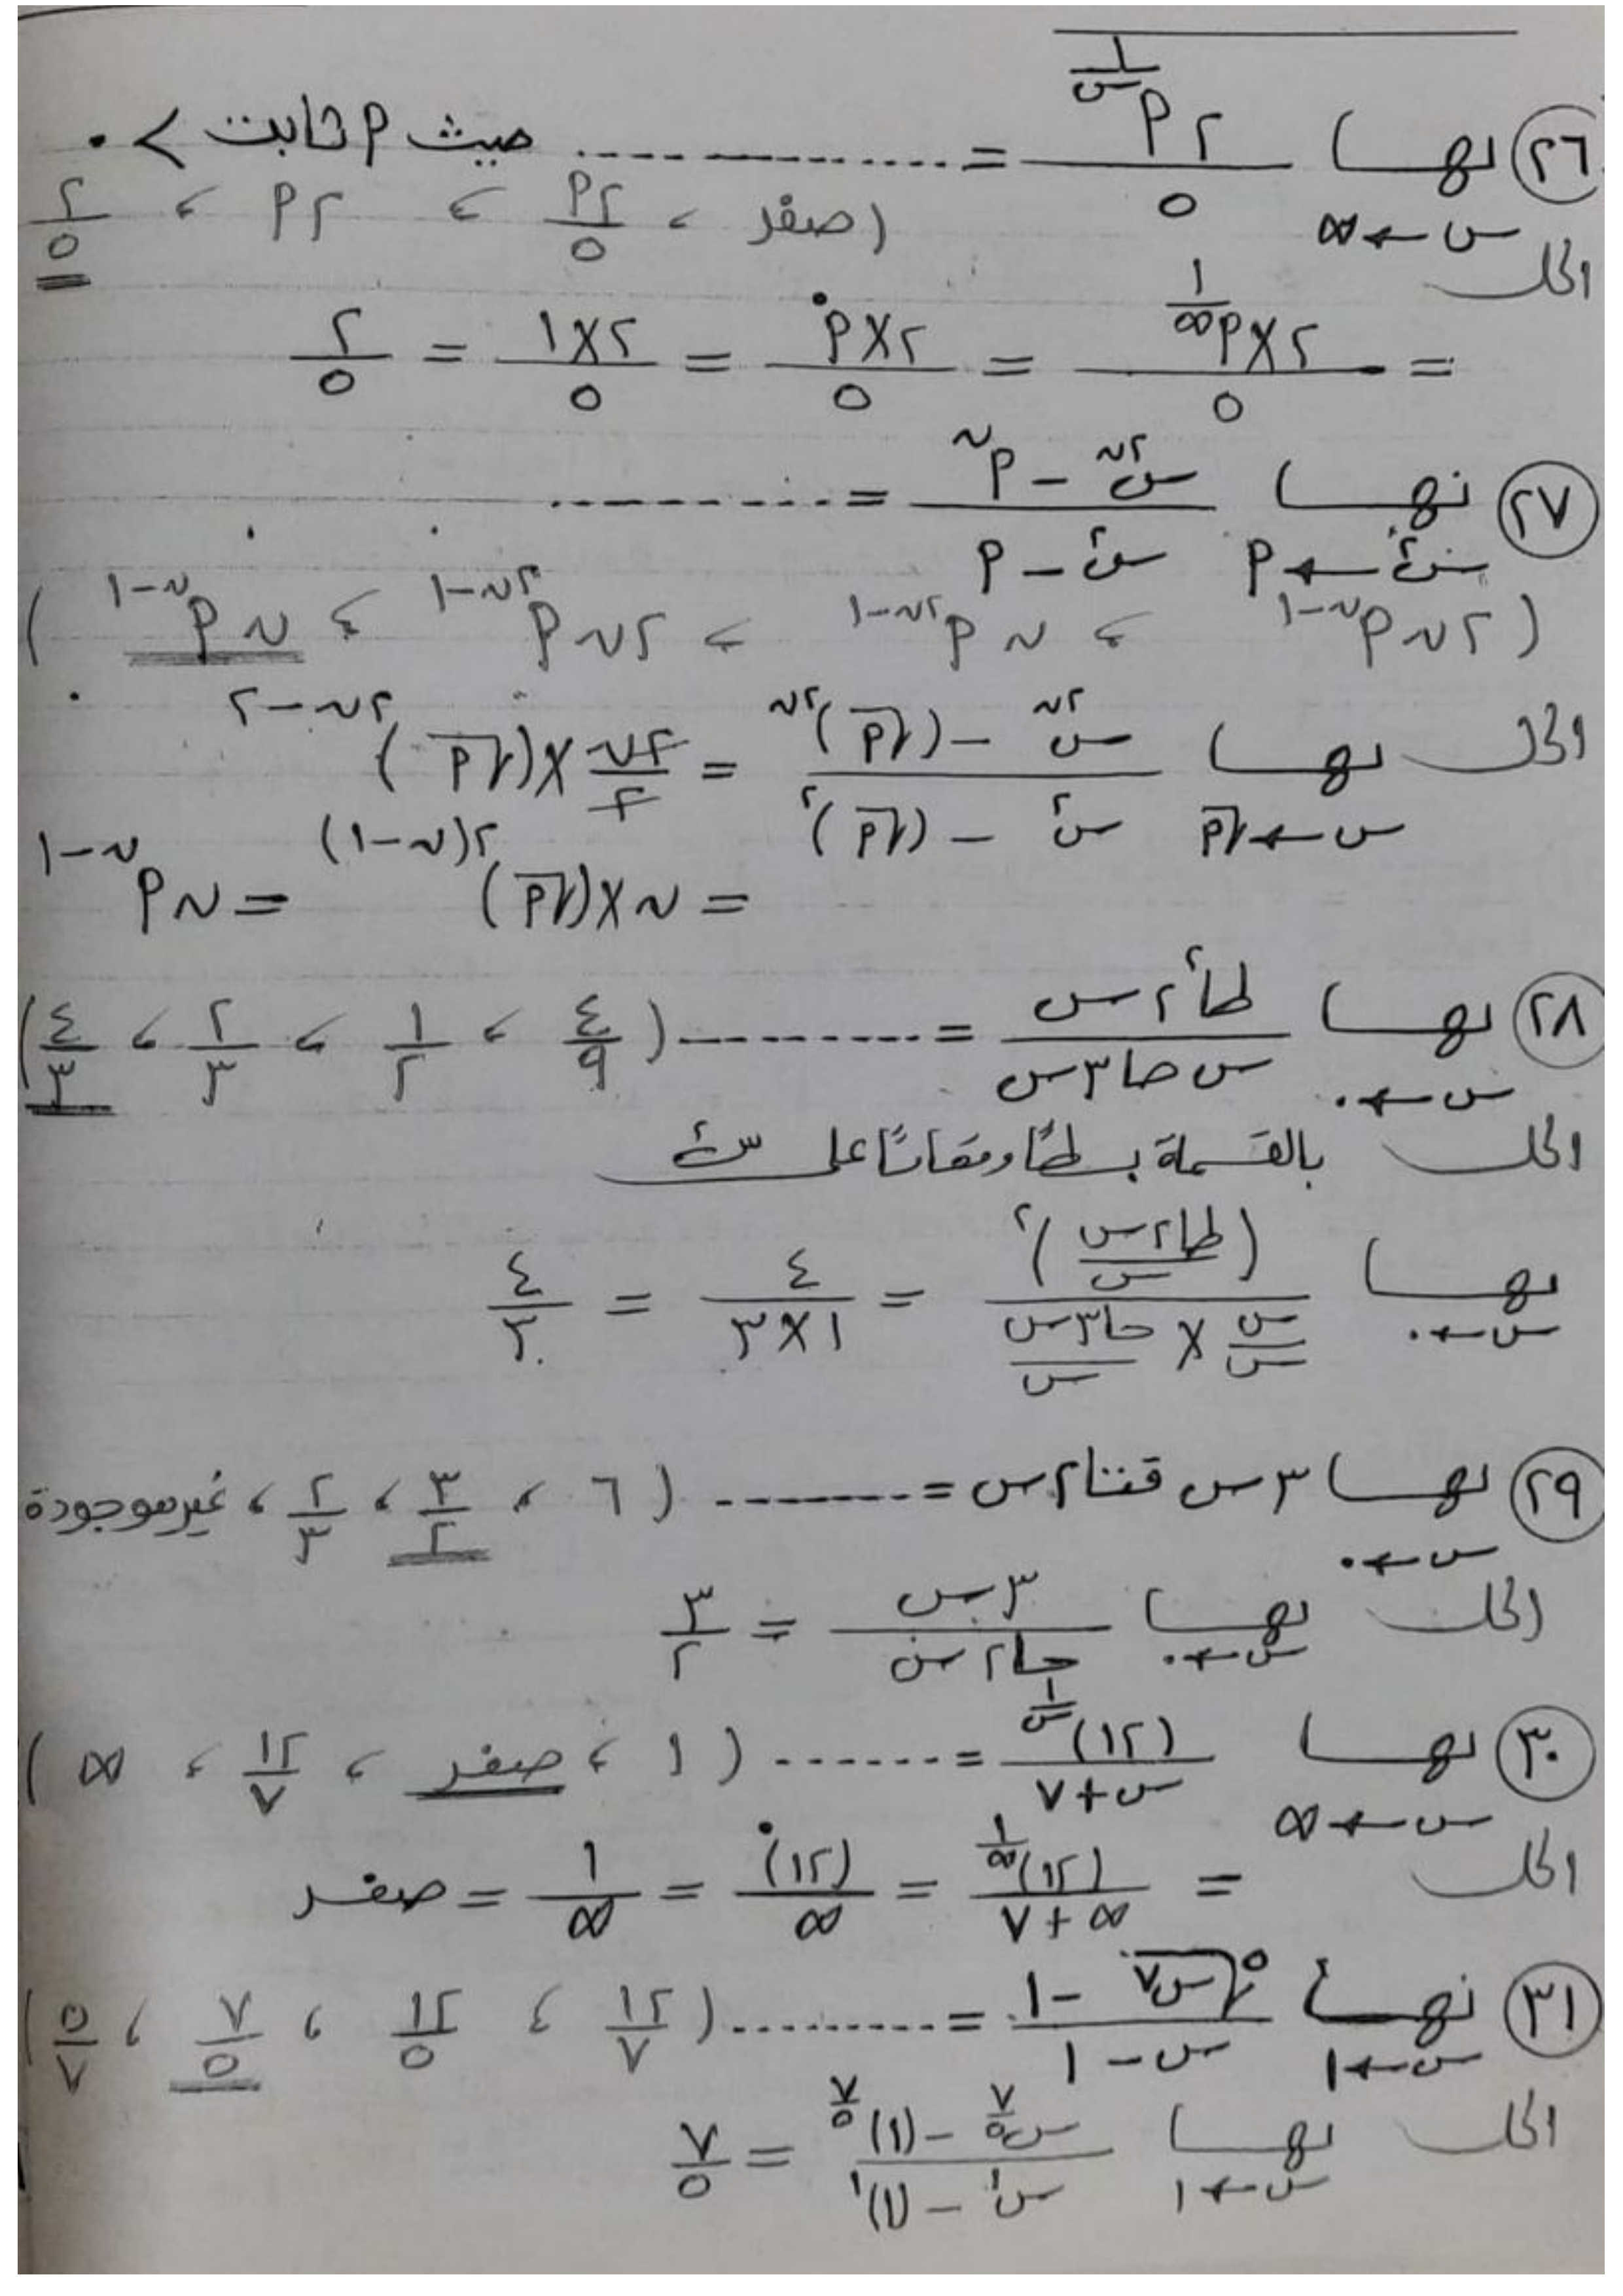 ٢٦ نهـــا س←∞ ٢ أ^(١/س) / ٥ = ............... حيث أ ثابت > ٠
(صفر ، ٢أ/٥ ، ٢أ ، ٢/٥
الحل
= ٢×أ^(١/∞) / ٥ = ٢×أ^٠ / ٥ = ٢×١ / ٥ = ٢/٥
٢٧ نهـــا س^٢←أ (س^٢ن - أ^ن) / (س^٢ - أ) = ...........
(٢ن أ^(ن-١) ، ن أ^(٢ن-١) ، ٢ن أ^(٢ن-١) ، ن أ^(ن-١))
الحل نهـــا س←√أ (س^٢ن - (√أ)^٢ن) / (س^٢ - (√أ)^٢) = ٢ن/٢ × (√أ)^(٢ن-٢)
= ن×(√أ)^٢(ن-١) = ن أ^(ن-١)
٢٨ نهـــا س←٠ طا^٢ ٢س / س حا ٣س = ......... (٤/٩ ، ١/٢ ، ٢/٣ ، ٤/٣)
الحل بالقسمة بسطًا ومقامًا على س^٢
نهـــا س←٠ (طا٢س/س)^٢ / (س/س × حا٣س/س) = ٤ / ١×٣ = ٤/٣
٢٩ نهـــا س←٠ ٣س قتا٢س = ........ (٦ ، ٣/٢ ، ٢/٣ ، غير موجودة
الحل نهـــا س←٠ ٣س / حا٢س = ٣/٢
٣٠ نهـــا س←∞ (١٢)^(١/س) / س+٧ = ....... (١ ، صفر ، ١٢/٧ ، ∞)
الحل = (١٢)^(١/∞) / ∞+٧ = (١٢)^٠ / ∞ = ١/∞ = صفر
٣١ نهـــا س←١ (٥√س^٧ - ١) / س - ١ = ......... (١٢/٧ ، ١٢/٥ ، ٧/٥ ، ٥/٧)
الحل نهـــا س←١ (س^(٧/٥) - (١)^(٧/٥)) / (س^١ - (١)^١) = ٧/٥